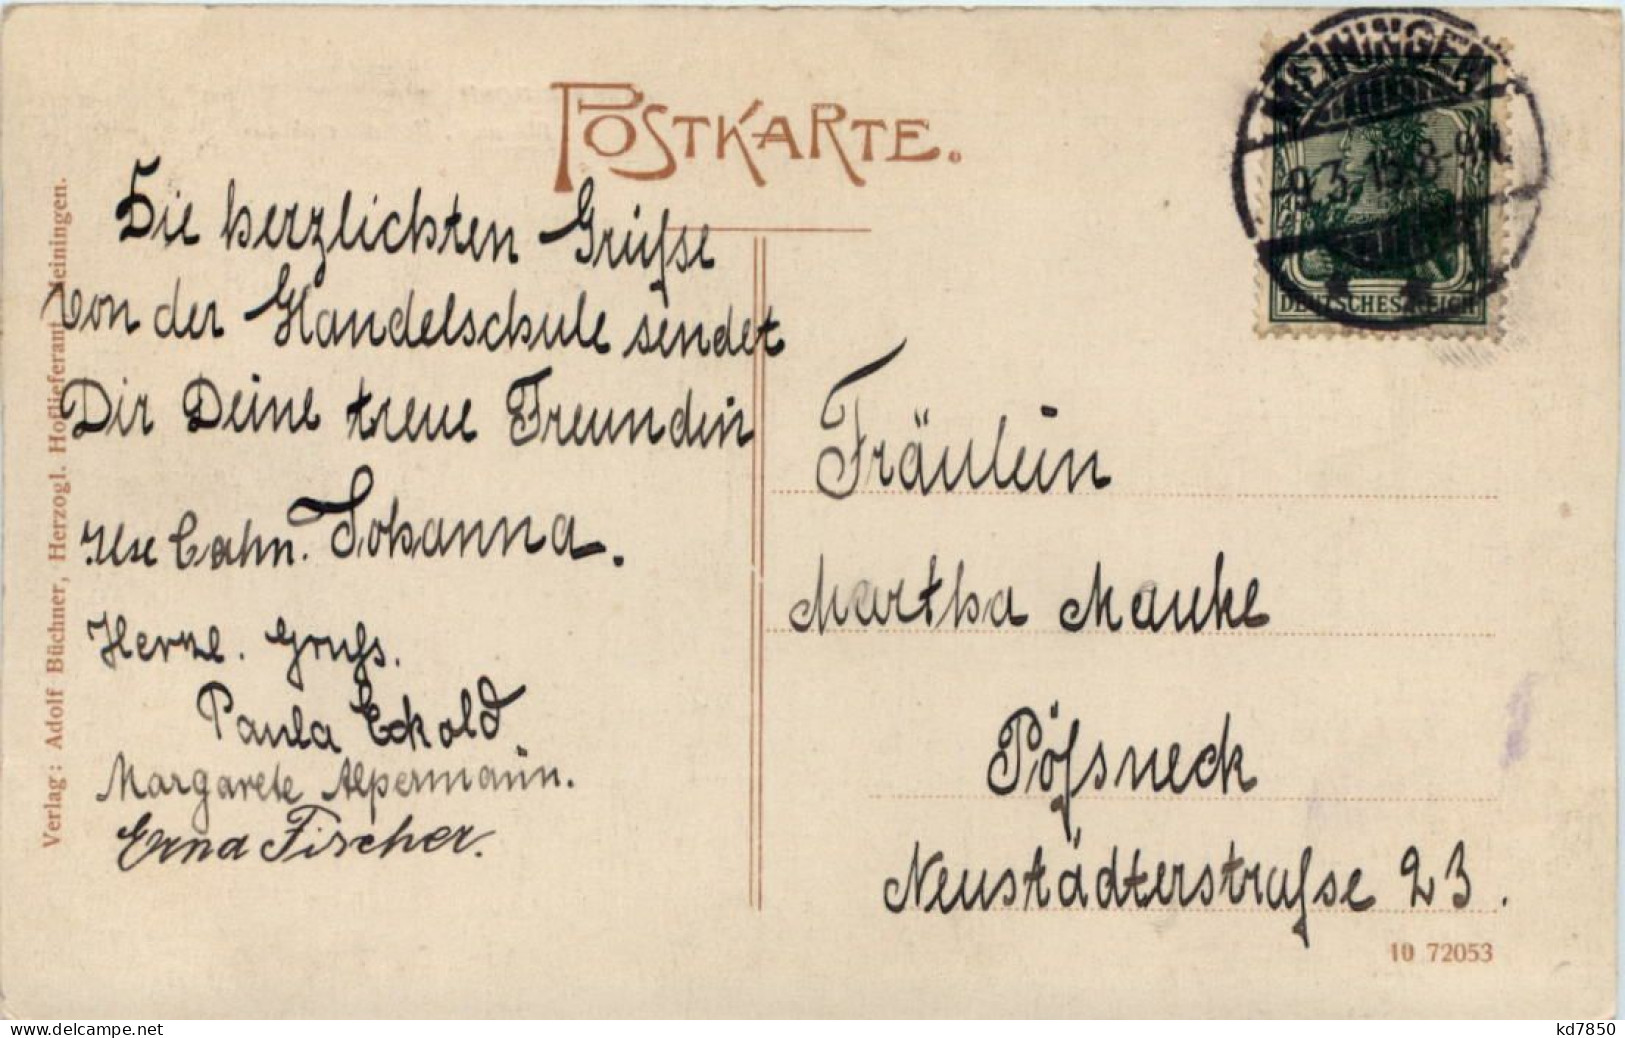 POSTKARTE.
Die herzlichsten Grüße
von der Handelschule sendet
Dir Deine treue Freundin
Ilse Cahn. Johanna.
Herzl. Gruß.
Paula Eckold
Margarete Alpermann.
Erna Fischer.
Verlag: Adolf Büchner, Herzogl. Hoflieferant, Meiningen.
MEININGEN
9.3.15.8-9N.
DEUTSCHES REICH
Fräulein
Martha Manke
Pößneck
Neustädterstraße 23.
10 72053
kd7850
www.delcampe.net